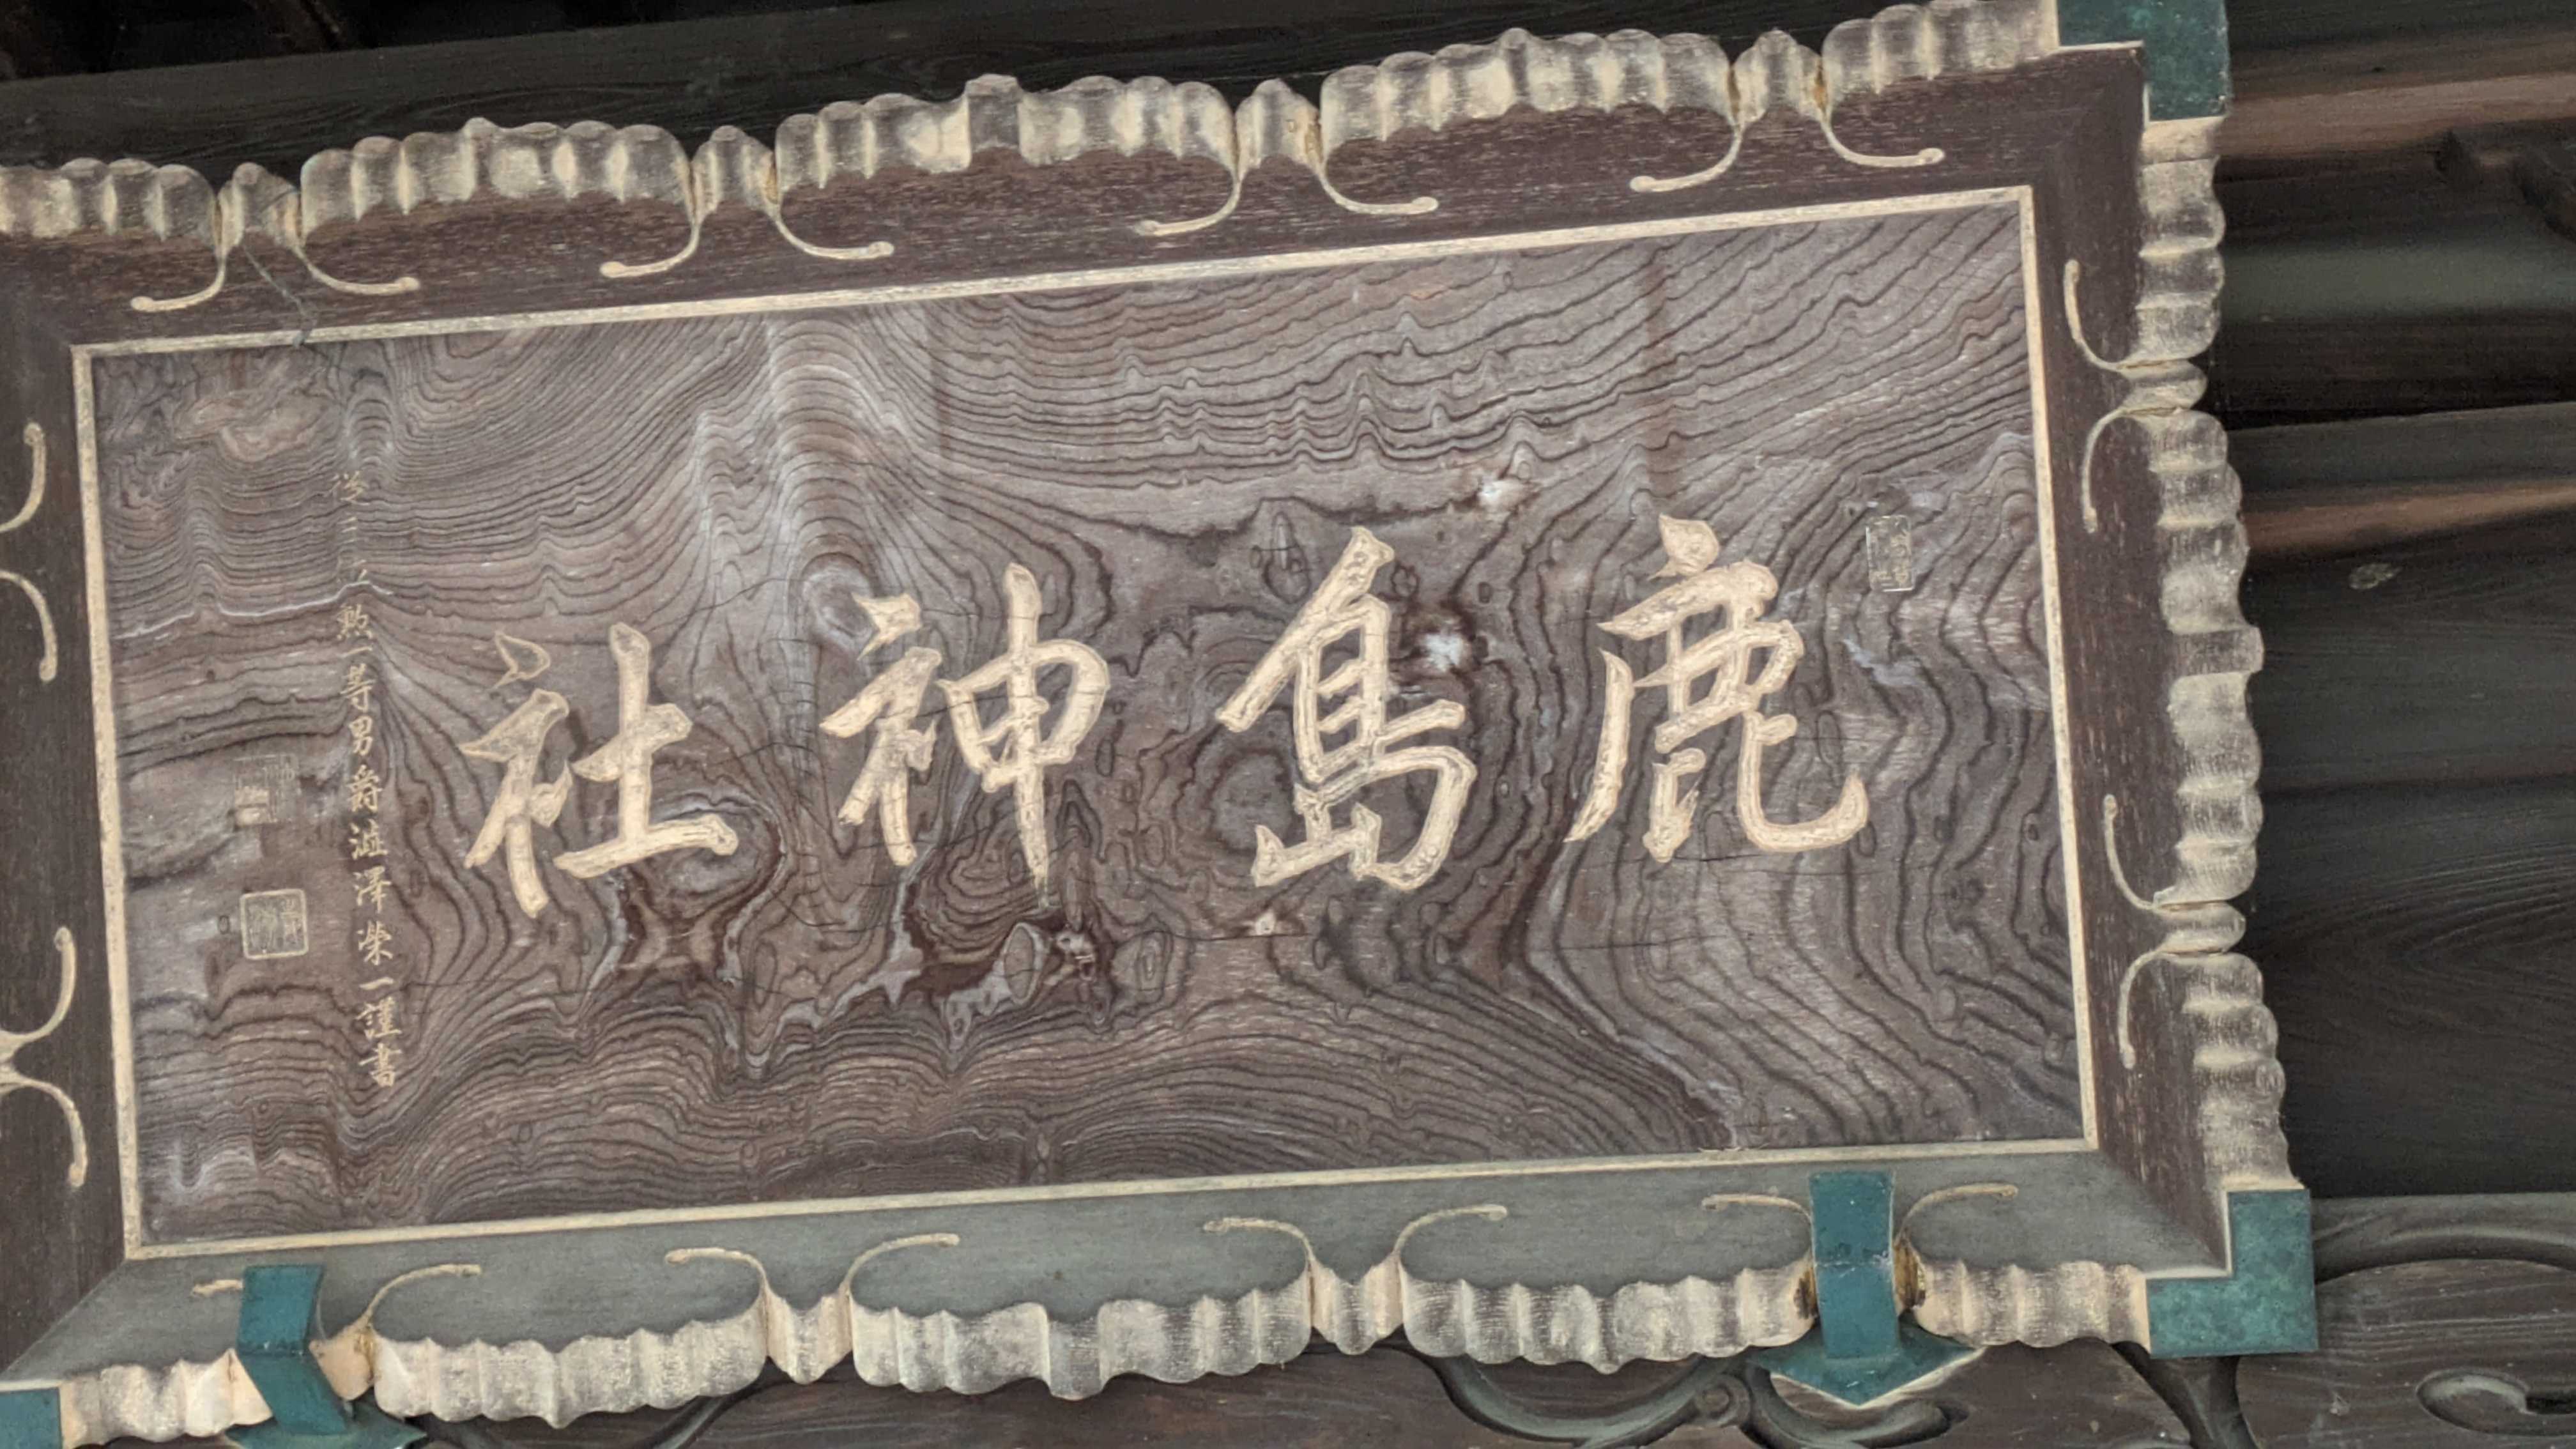 鹿島神社
從三位勲一等男爵澁澤榮一謹書